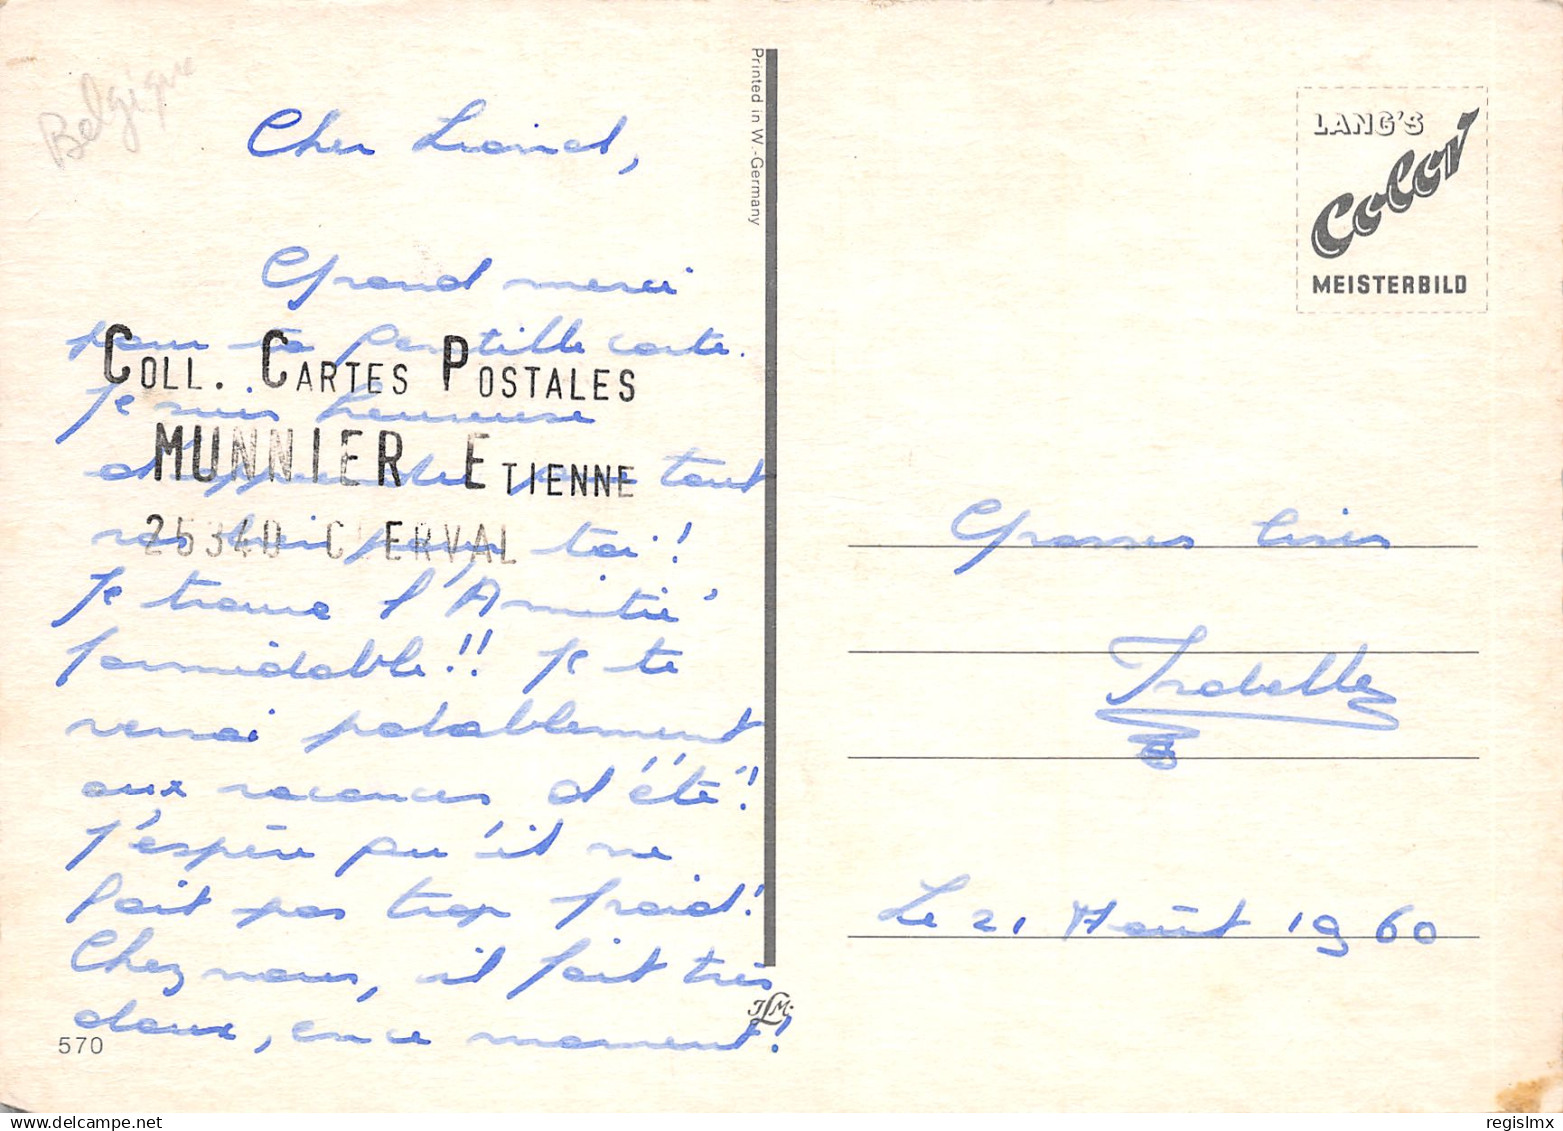 Belgique
Cher Lionel,
Grand merci
pour ta gentille carte.
Je suis heureuse
d'apprendre que tout
va bien pour toi!
Je trouve l'Amitié
formidable!! Je te
verrai probablement
aux vacances d'été!
J'espère qu'il ne
fait pas trop froid!
Chez nous, il fait très
doux, en ce moment!
COLL. CARTES POSTALES
MUNNIER ETIENNE
25340 CLERVAL
570
Printed in W.-Germany
JLM
LANG'S
Color
MEISTERBILD
Grosses bises
Isabelle
Le 21 Août 1960
delcampe.net
regislmx